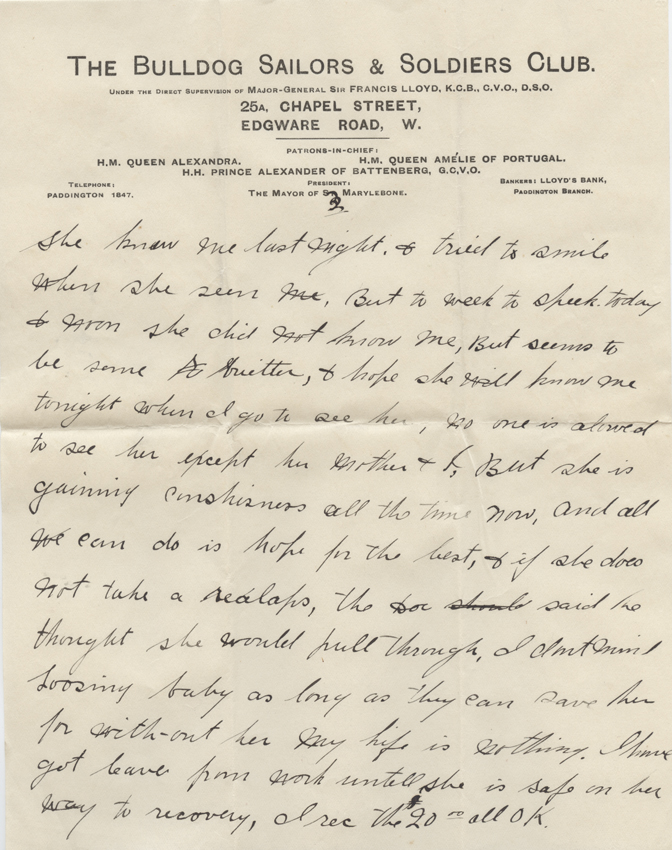 THE BULLDOG SAILORS & SOLDIERS CLUB.
UNDER THE DIRECT SUPERVISION OF MAJOR-GENERAL SIR FRANCIS LLOYD, K.C.B., C.V.O., D.S.O.
25A, CHAPEL STREET,
EDGWARE ROAD, W.
PATRONS-IN-CHIEF:
H.M. QUEEN ALEXANDRA. H.M. QUEEN AMÉLIE OF PORTUGAL.
H.H. PRINCE ALEXANDER OF BATTENBERG, G.C.V.O.
TELEPHONE: PRESIDENT: BANKERS: LLOYD'S BANK,
PADDINGTON 1847. THE MAYOR OF ST MARYLEBONE. PADDINGTON BRANCH.
2
She know me last night. & tried to smile
when she seen me, But to week to speek. today
& noon she did not know me, But seems to
be some better, & hope she will know me
tonight when I go to see her, no one is alowed
to see her except her Mother & I, But she is
gaining conshisness all the time now, and all
we can do is hope for the best, & if she does
not take a realaps, the Doc should said he
thought she would pull through, I dont mind
loosing baby as long as they can save her
for with-out her my life is nothing. I have
got leave from work untell she is safe on her
way to recovery, I rec the $20 00 all OK.